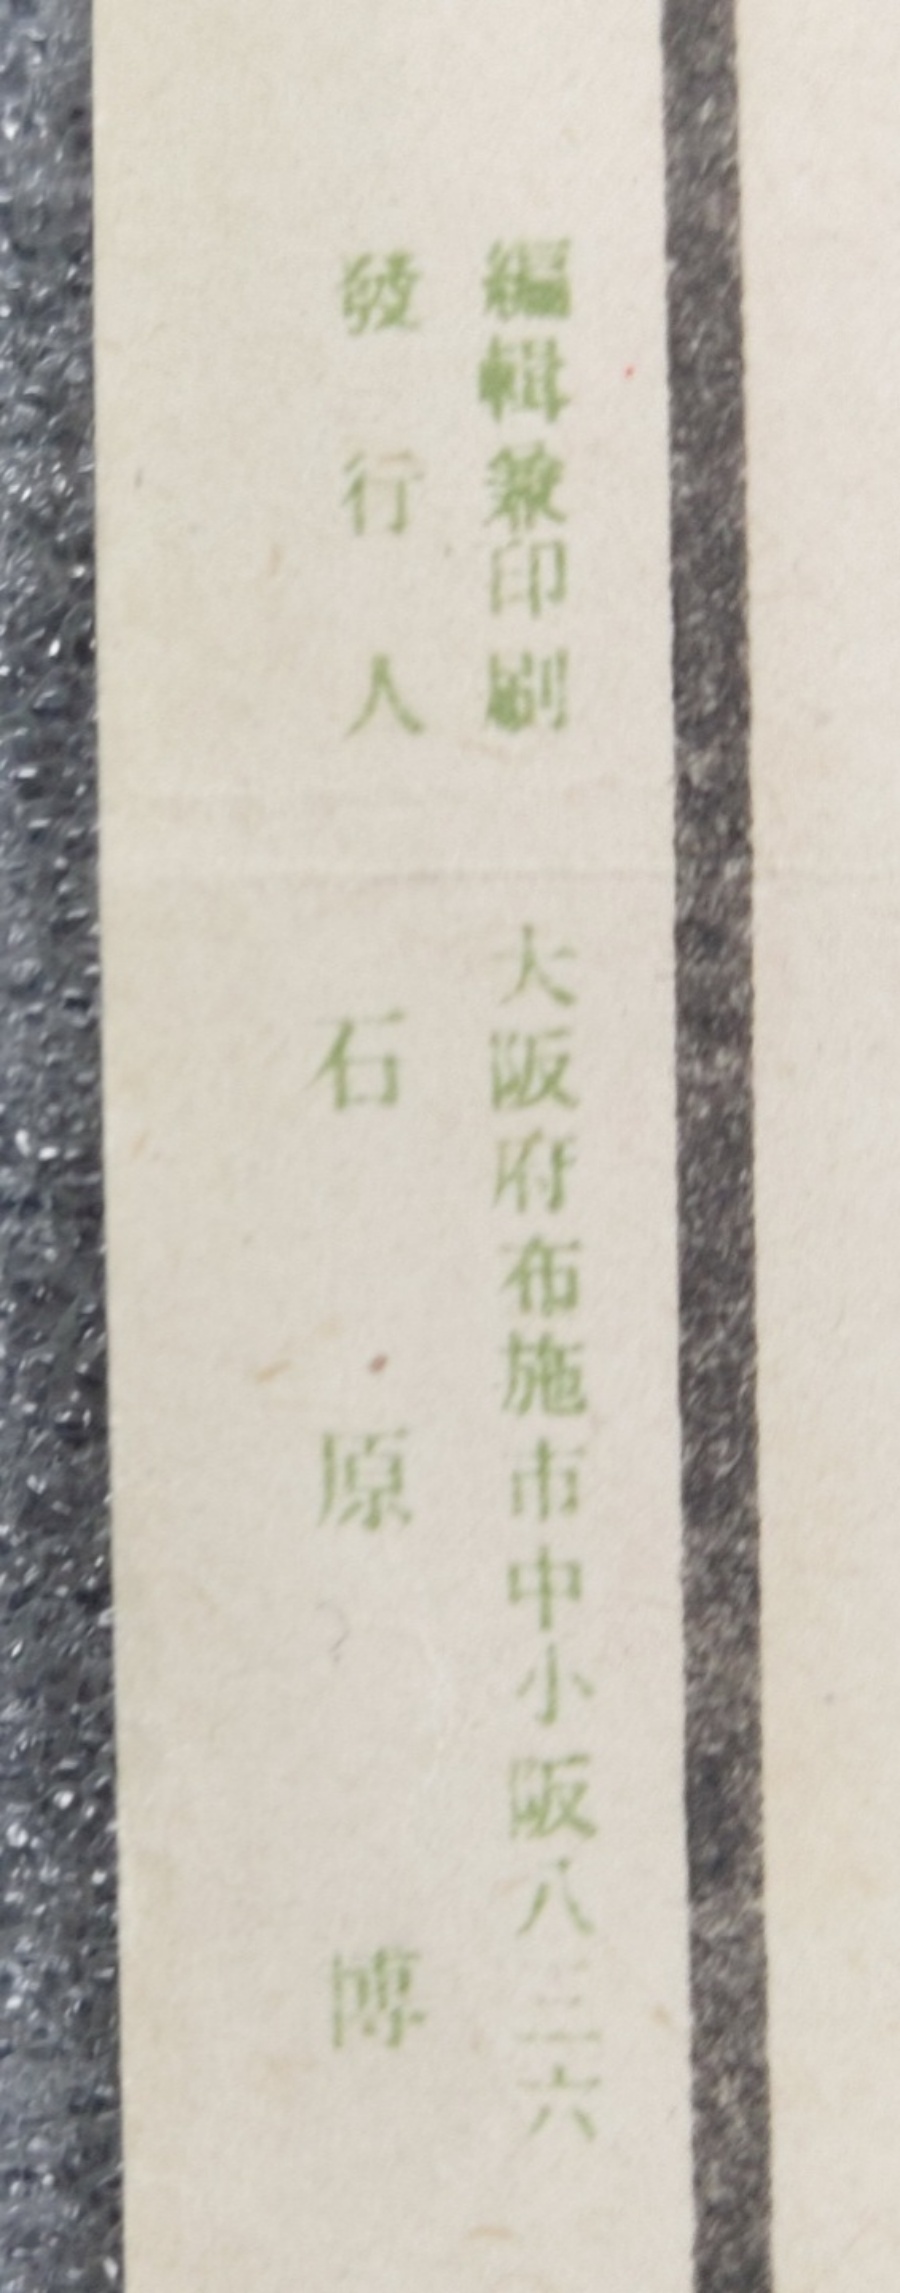 編輯兼印刷 大阪府布施市中小阪八三六
發行人 石原博